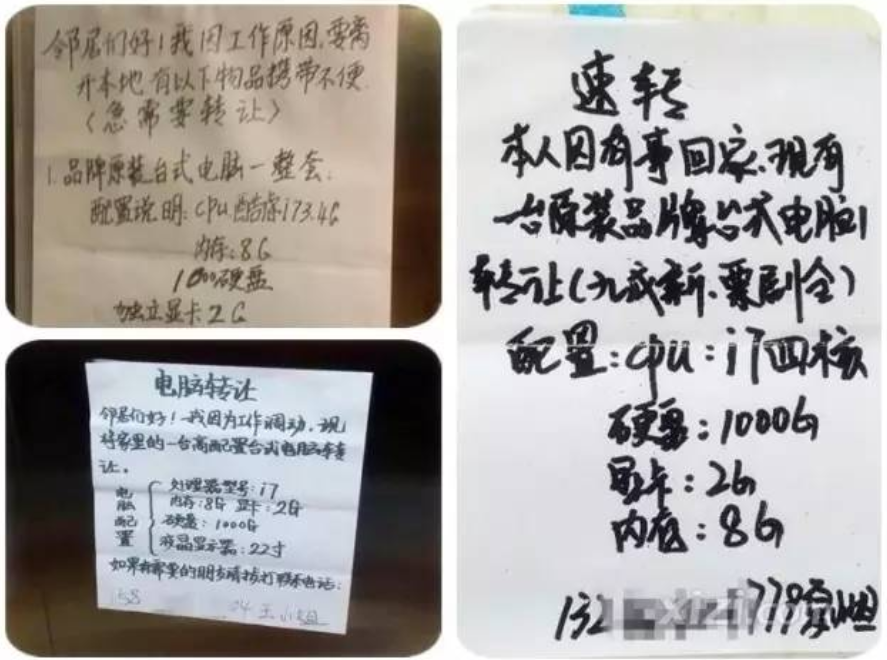 邻居们好!我因工作原因,要离
开本地有以下物品携带不便.
(急需要转让)
1.品牌原装台式电脑一整套.
配置说明:cpu酷睿i73.4G
内存:8G
1000硬盘
独立显卡2G
电脑转让
邻居们好!我因为工作调动,现
将家里的一台高配置台式电脑转
让。
电脑配置
处理器型号:i7
内存:8G 显卡:2G
硬盘:1000G
液晶显示器:22寸
如果有需要的朋友请拨打联系电话:
158 04 王小姐
速转
本人因有事回家.现有
一台原装品牌台式电脑
转让(九成新.票剧全)
配置:cpu:i7四核
硬盘:1000G
显卡:2G
内存:8G
132 779
xizi.com